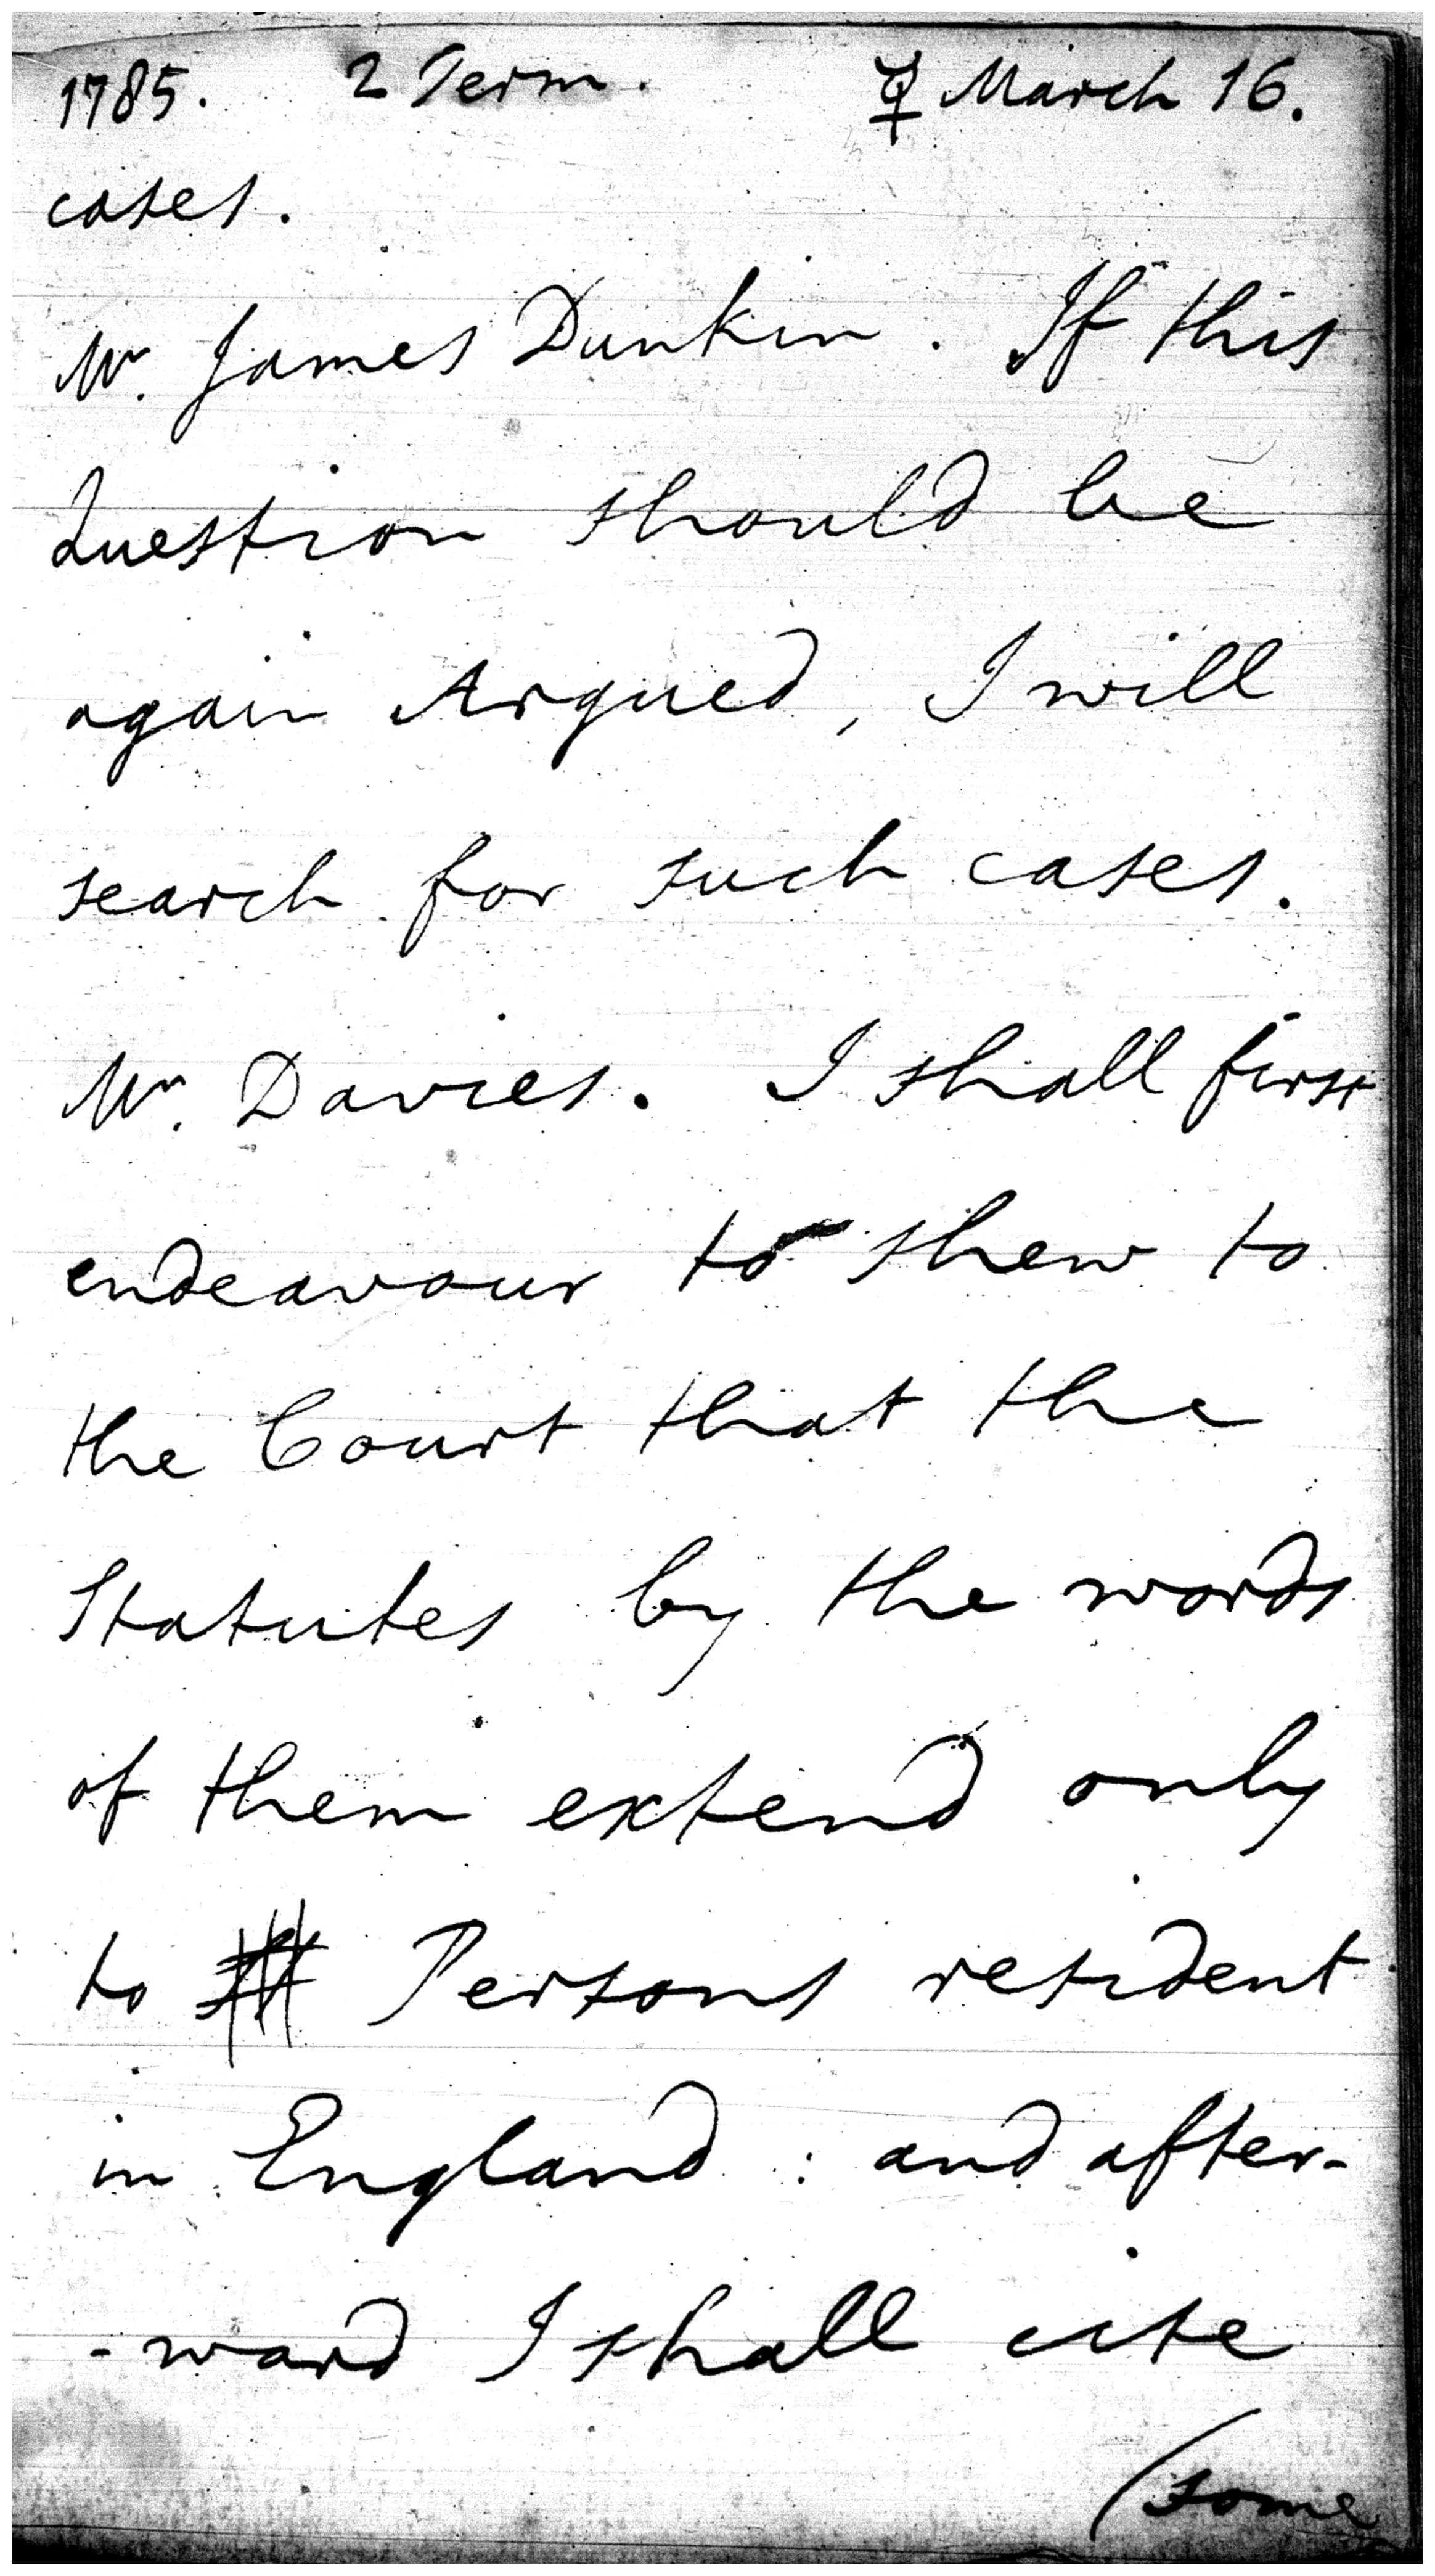 1785. 2 Term. ☿ March 16.
cases.
Mr. James Dunkin. If this
Question should be
again Argued, I will
search for such cases.
Mr. Davies. I shall first
endeavour to shew to
the Court that the
Statutes by the words
of them extend only
to Persons resident
in England : and after-
-ward I shall cite
(some